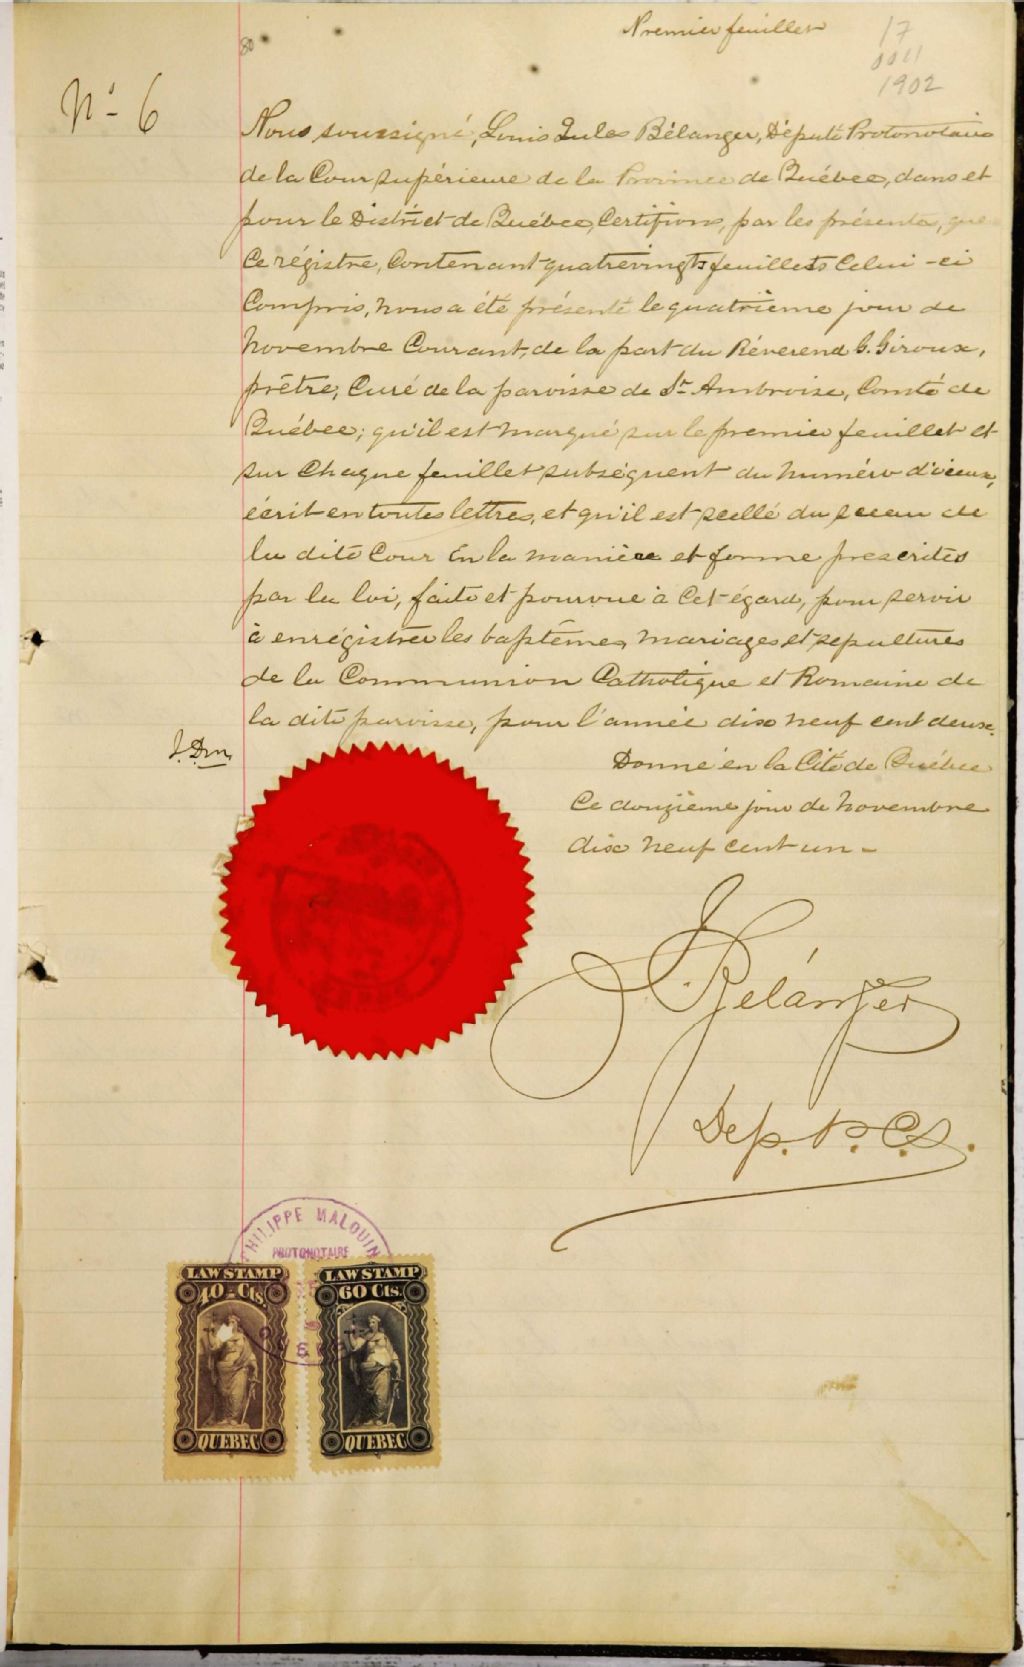 Premier feuillet
17
1902
80
No 6
Nous soussigné, Louis Jules Bélanger, Député Protonotaire
de la Cour supérieure de la Province de Québec, dans et
pour le District de Québec, Certifions, par les présentes, que
Ce régistre, Contenant quatrevingts feuillets Celui-ci
Compris, nous a été présenté le quatrième jour de
Novembre Courant, de la part du Réverend G. Giroux,
prêtre, Curé de la paroisse de St Ambroise, Comté de
Québec; qu'il est marqué sur le premier feuillet et
sur Chaque feuillet subséquent du numéro d'iceux,
écrit en toutes lettres, et qu'il est scellé du sceau de
la dite Cour En la manière et forme prescrites
par la loi, faite et pourvue à Cet égard, pour servir
à enrégistrer les baptêmes, mariages et sepultures
de la Communion Catholique et Romaine de
la dite paroisse, pour l'année dix neuf cent deux.
Donné en la Cité de Québec
Ce douzième jour de Novembre
dix neuf cent un -
Bélanger
Dep. P. C. S.
PHILIPPE MALOUIN
PROTONOTAIRE
LAW STAMP
40-Cts.
QUEBEC
LAW STAMP
60 Cts.
QUEBEC